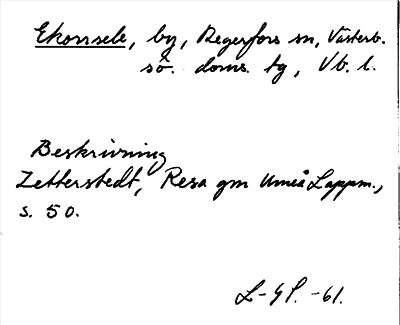 Ekorrsele, by, Degerfors sn, Västerb.
sö. doms. tg, Vb. l.
Beskrivning
Zetterstedt, Resa gm Umeå Lappm.,
s. 50.
L-GP. -61.